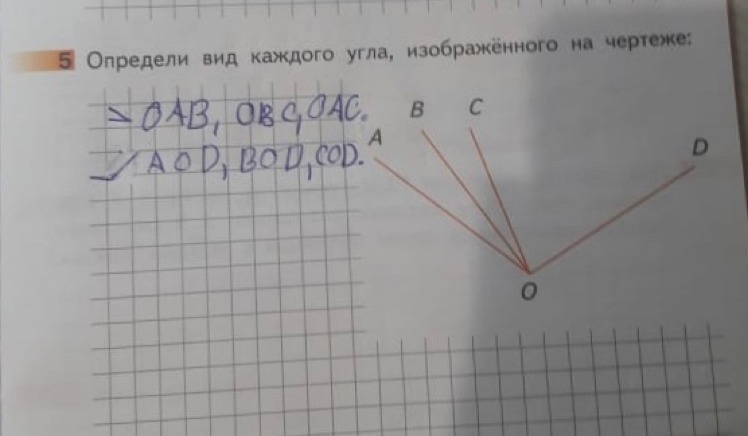 5 Определи вид каждого угла, изображённого на чертеже:
> OAB, OBC, OAC.
AOD, BOD, COD.
A
B
C
D
O